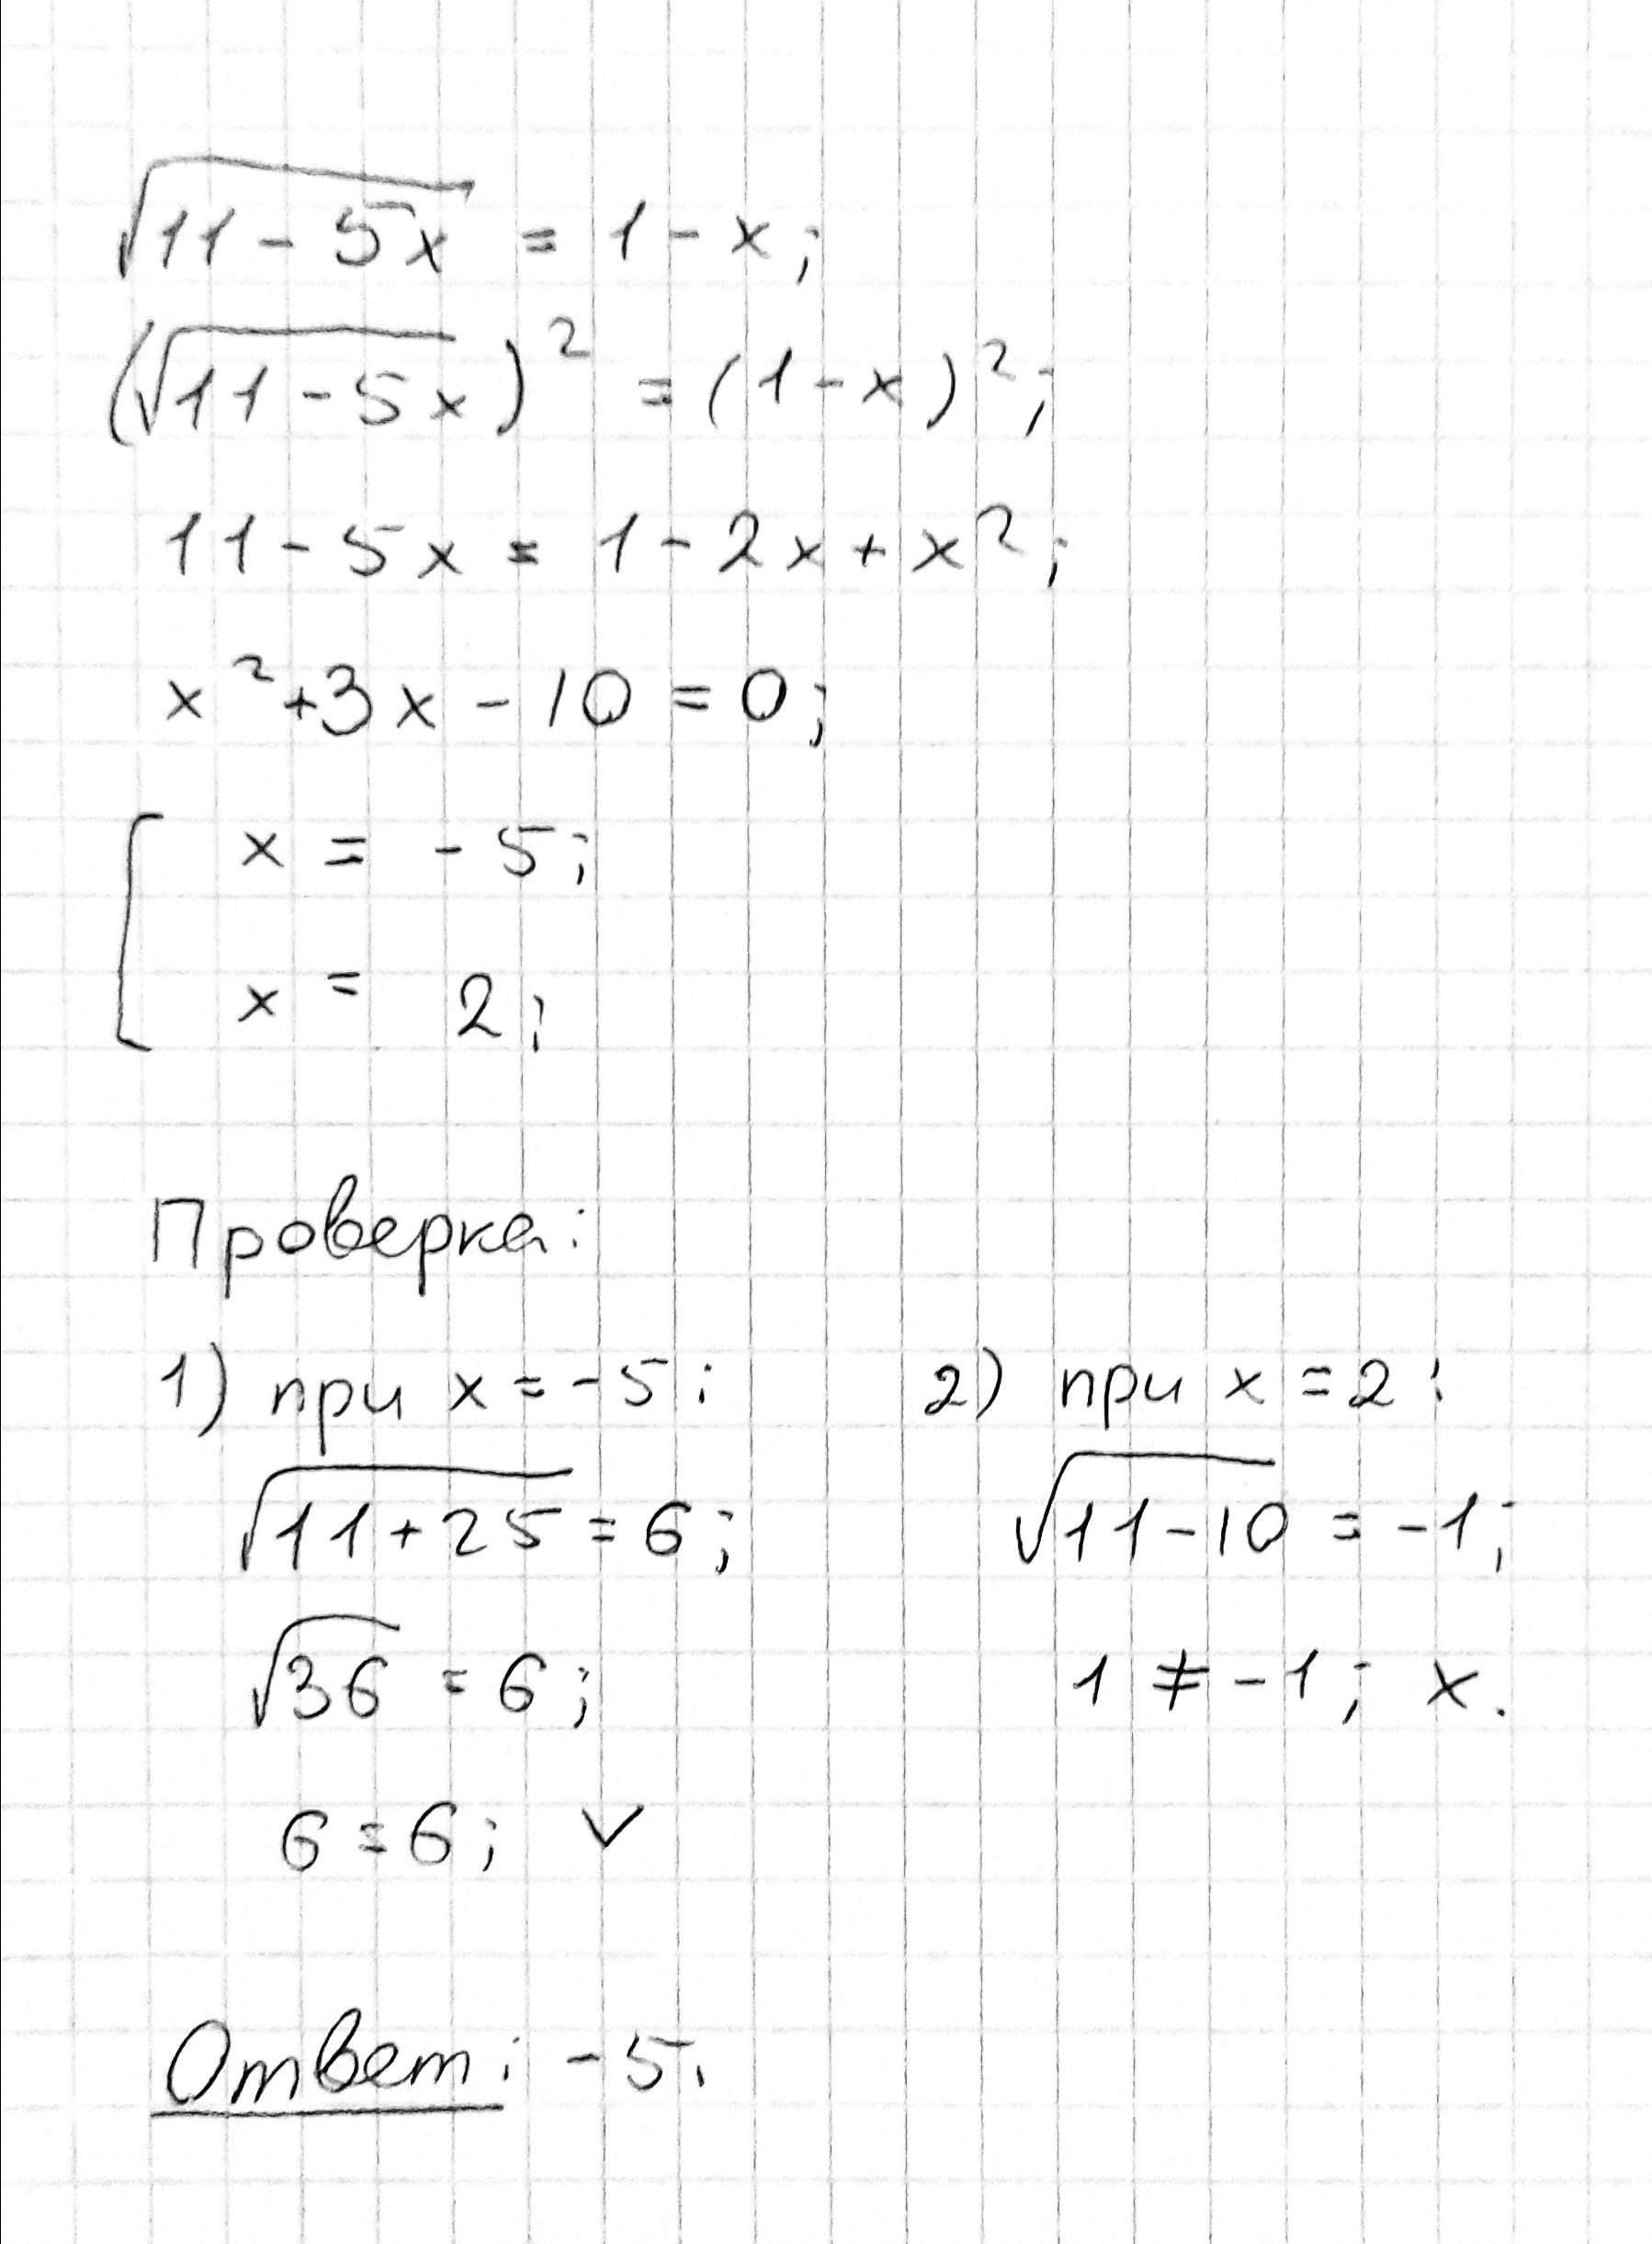 √(11 - 5x) = 1 - x;
(√(11 - 5x))² = (1 - x)²;
11 - 5x = 1 - 2x + x²;
x² + 3x - 10 = 0;
[ x = - 5;
x = 2;
Проверка:
1) при x = -5:
√(11 + 25) = 6;
√36 = 6;
6 = 6; ✓
2) при x = 2:
√(11 - 10) = -1;
1 ≠ -1; x.
Ответ: -5.